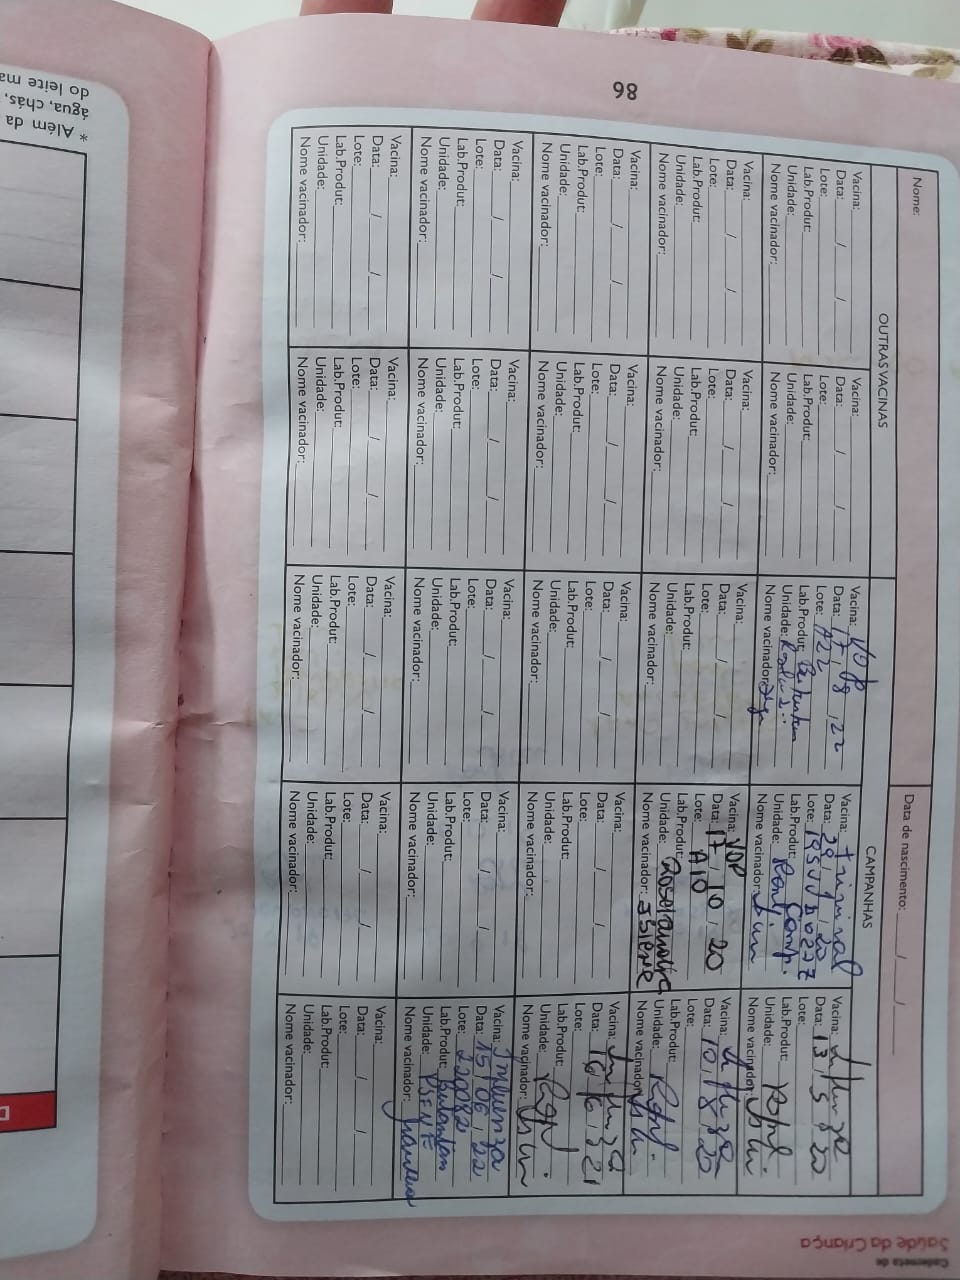 Caderneta de
Saúde da Criança
Nome:
Data de nascimento: / /
OUTRAS VACINAS
CAMPANHAS
Vacina:
Data: / /
Lote:
Lab.Produt:
Unidade:
Nome vacinador:
Vacina:
Data: / /
Lote:
Lab.Produt:
Unidade:
Nome vacinador:
Vacina: VOP
Data: 17 / 08 / 22
Lote: A22
Lab.Produt:
Unidade:
Nome vacinador:
Vacina:
Data: / 20
Lote:
Lab.Produt:
Unidade:
Nome vacinador:
Vacina: Influenza
Data: 13 / 5 / 20
Lote:
Lab.Produt:
Unidade:
Nome vacinador:
Vacina:
Data: / /
Lote:
Lab.Produt:
Unidade:
Nome vacinador:
Vacina:
Data: / /
Lote:
Lab.Produt:
Unidade:
Nome vacinador:
Vacina:
Data: / /
Lote:
Lab.Produt:
Unidade:
Nome vacinador:
Vacina: VOP
Data: 17 / 10 / 20
Lote: A10
Lab.Produt:
Unidade:
Nome vacinador:
Vacina: Influenza
Data: 10 / 8 / 20
Lote:
Lab.Produt:
Unidade:
Nome vacinador:
Vacina:
Data: / /
Lote:
Lab.Produt:
Unidade:
Nome vacinador:
Vacina:
Data: / /
Lote:
Lab.Produt:
Unidade:
Nome vacinador:
Vacina:
Data: / /
Lote:
Lab.Produt:
Unidade:
Nome vacinador:
Vacina:
Data: / /
Lote:
Lab.Produt:
Unidade:
Nome vacinador:
Vacina: Influenza
Data: 16 / 6 / 21
Lote:
Lab.Produt:
Unidade:
Nome vacinador:
Vacina:
Data: / /
Lote:
Lab.Produt:
Unidade:
Nome vacinador:
Vacina:
Data: / /
Lote:
Lab.Produt:
Unidade:
Nome vacinador:
Vacina:
Data: / /
Lote:
Lab.Produt:
Unidade:
Nome vacinador:
Vacina:
Data: / /
Lote:
Lab.Produt:
Unidade:
Nome vacinador:
Vacina: Influenza
Data: 15 / 06 / 22
Lote:
Lab.Produt: Butantan
Unidade:
Nome vacinador:
Vacina:
Data: / /
Lote:
Lab.Produt:
Unidade:
Nome vacinador:
Vacina:
Data: / /
Lote:
Lab.Produt:
Unidade:
Nome vacinador:
Vacina:
Data: / /
Lote:
Lab.Produt:
Unidade:
Nome vacinador:
Vacina:
Data: / /
Lote:
Lab.Produt:
Unidade:
Nome vacinador:
Vacina:
Data: / /
Lote:
Lab.Produt:
Unidade:
Nome vacinador:
86
* Além da
água, chás,
do leite ma